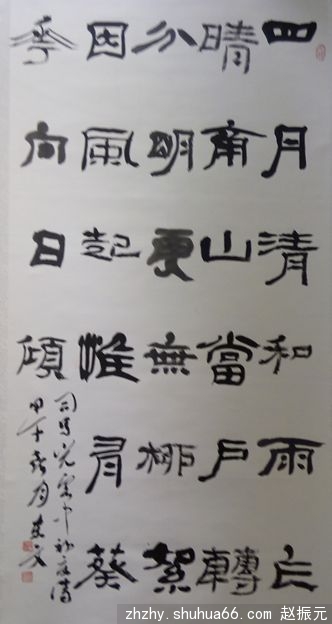 四月清和雨乍
晴南山當戶轉
分明更無柳絮
因風起惟有葵
華向日傾
司馬光客中初夏詩
甲午月
zhzhy.shuhua66.com 赵振元